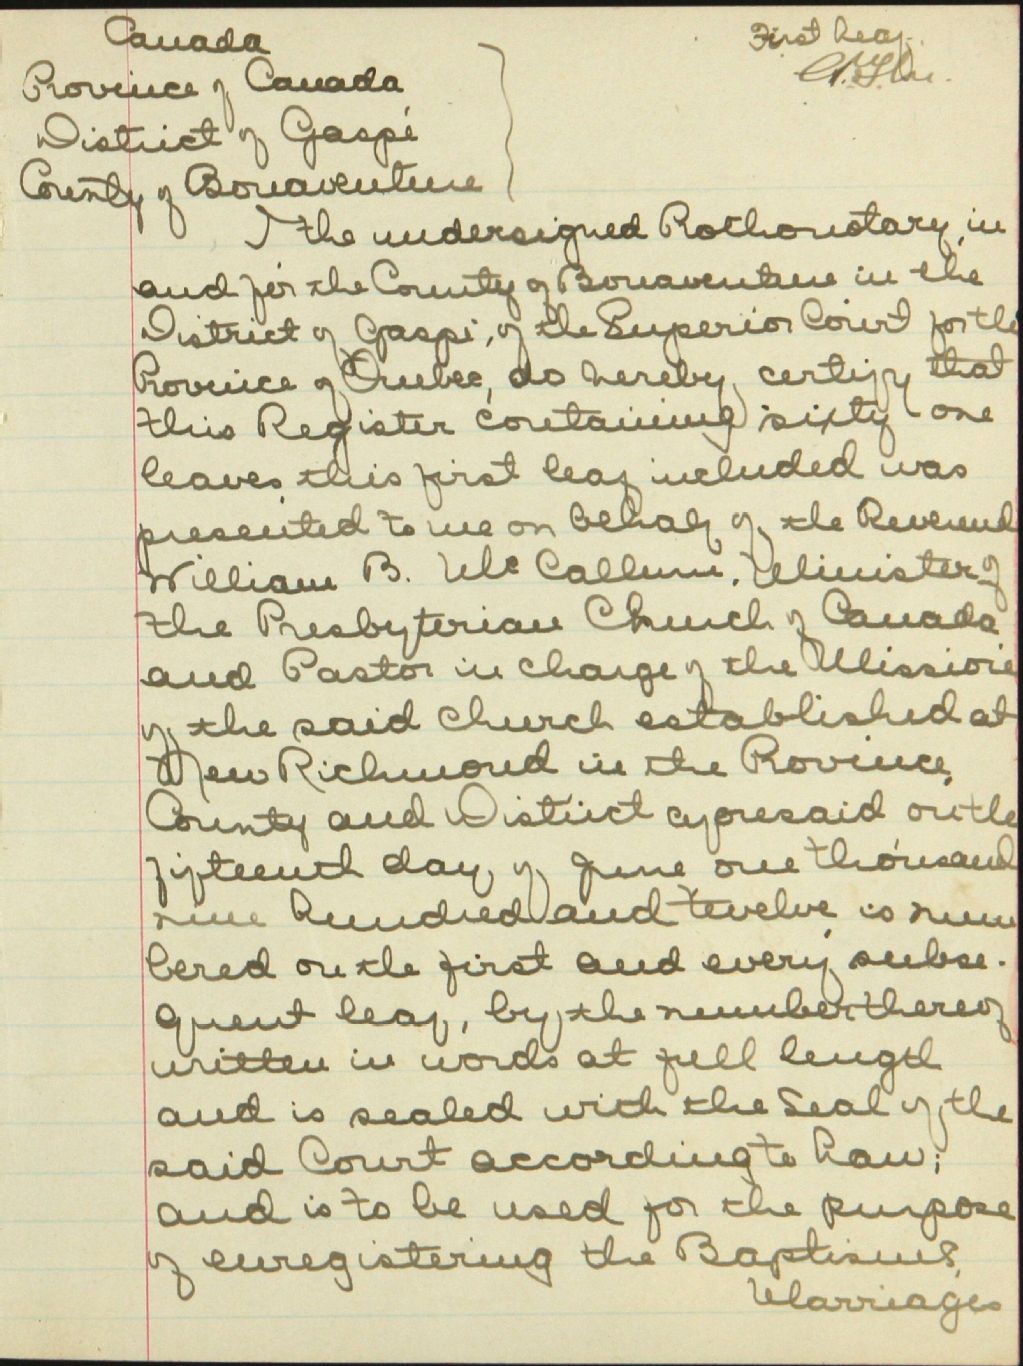 Canada
First Leaf.
Province of Canada
District of Gaspé
County of Bonaventure
I the undersigned Prothonotary, in
and for the County of Bonaventure in the
District of Gaspé, of the Superior Court for the
Province of Quebec, do hereby certify that
this Register containing sixty one
leaves this first leaf included was
presented to me on behalf of the Reverend
William B. McCallum, Minister of
the Presbyterian Church of Canada
and Pastor in charge of the Mission
of the said Church established at
New Richmond in the Province,
County and District aforesaid on the
fifteenth day of June one thousand
nine hundred and twelve, is num
bered on the first and every subse-
quent leaf, by the number thereof
written in words at full length
and is sealed with the Seal of the
said Court according to Law;
and is to be used for the purpose
of enregistering the Baptisms,
Marriages